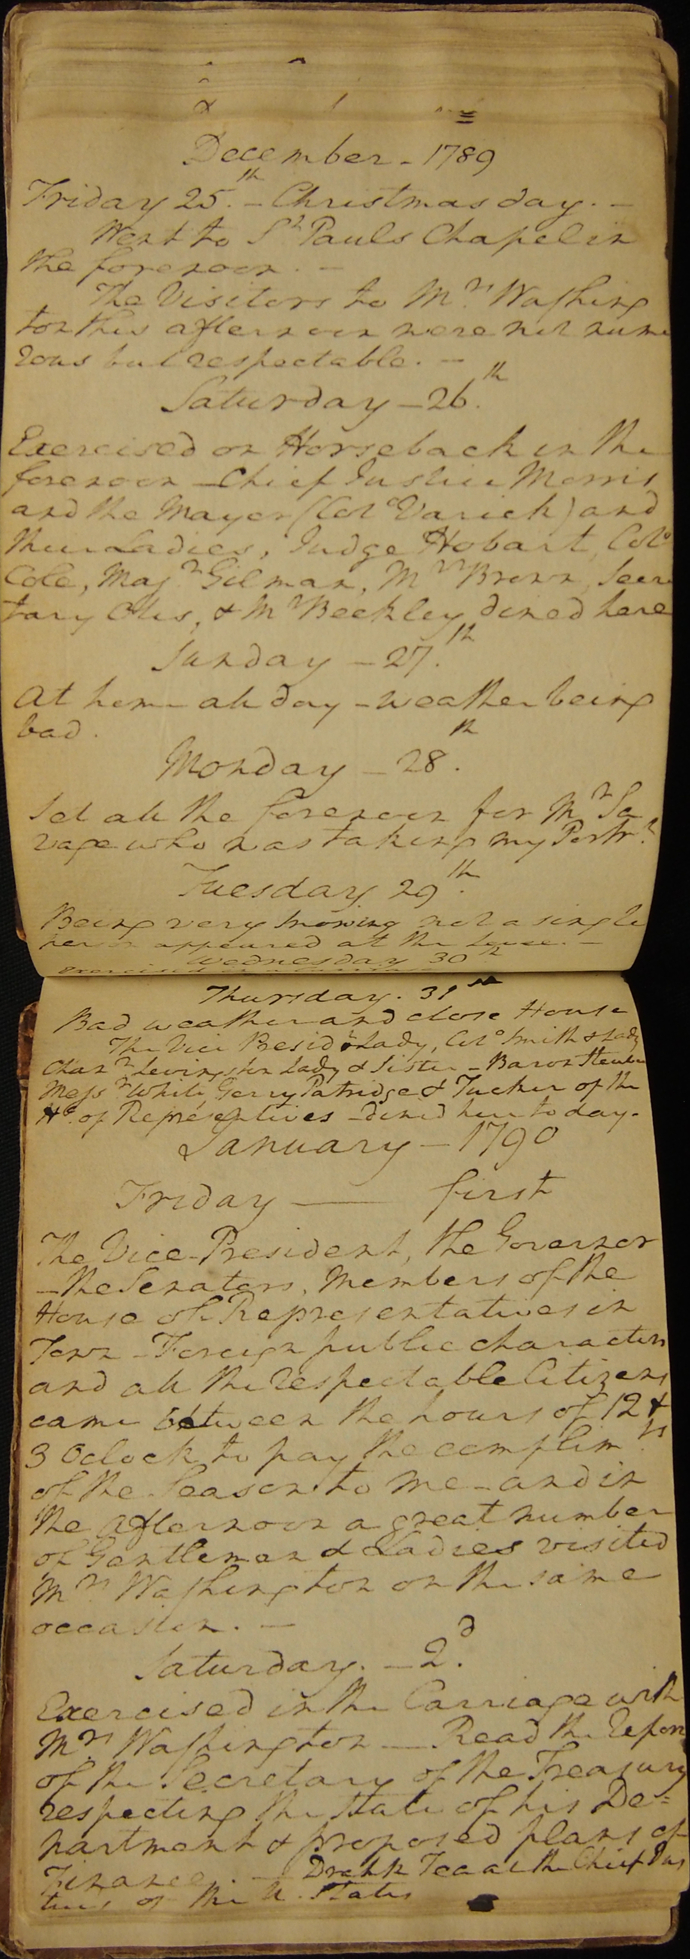 December - 1789
Friday 25.th - Christmas day. -
Went to St Pauls Chapel in
the forenoon. -
The Visitors to Mrs Washing
ton this afternoon were not nume
rous but respectable. -
Saturday - 26.th
Exercised on Horseback in the
forenoon - Chief Justice Morris
and the Mayor (Colo Varick) and
their Ladies, Judge Hobart, Colo
Cole, Majr Gilman, Mrs Brown, Secre
tary Otis, & Mr Beckley dined here
Sunday - 27.th
At home all day - weather being
bad.
Monday - 28.th
Set all the forenoon for Mr Sa
vage who was taking my Portrt
Tuesday 29.th
Being very snowing not a single
person appeared at the Levee. -
Wednesday 30th
Exercised in
Thursday. 31st
Bad weather and close House
The Vice Presidt & Lady, Colo Smith & Lady
Chanr Levingston Lady & Sister - Baron Steuben
Messrs White, Gerry Patridge & Tucker of the
Ho. of Representives - dined here to day.
January - 1790
Friday — first
The Vice-President, the Governor
- the Senators, Members of the
House of Representatives in
Town - Foreign public characters
and all the respectable Citizens
came between the hours of 12 &
3 Oclock to pay the complimts
of the Season to me - and in
the afternoon a great number
of Gentlemen & Ladies visited
Mrs Washington on the same
occasion. -
Saturday. - 2.d
Exercised in the Carriage with
Mrs Washington — Read the Report
of the Secretary of the Treasury
respecting the state of his De=
partment & proposed plans of
Finance. - Drank Tea at the Chief Jus
tices of the U. States